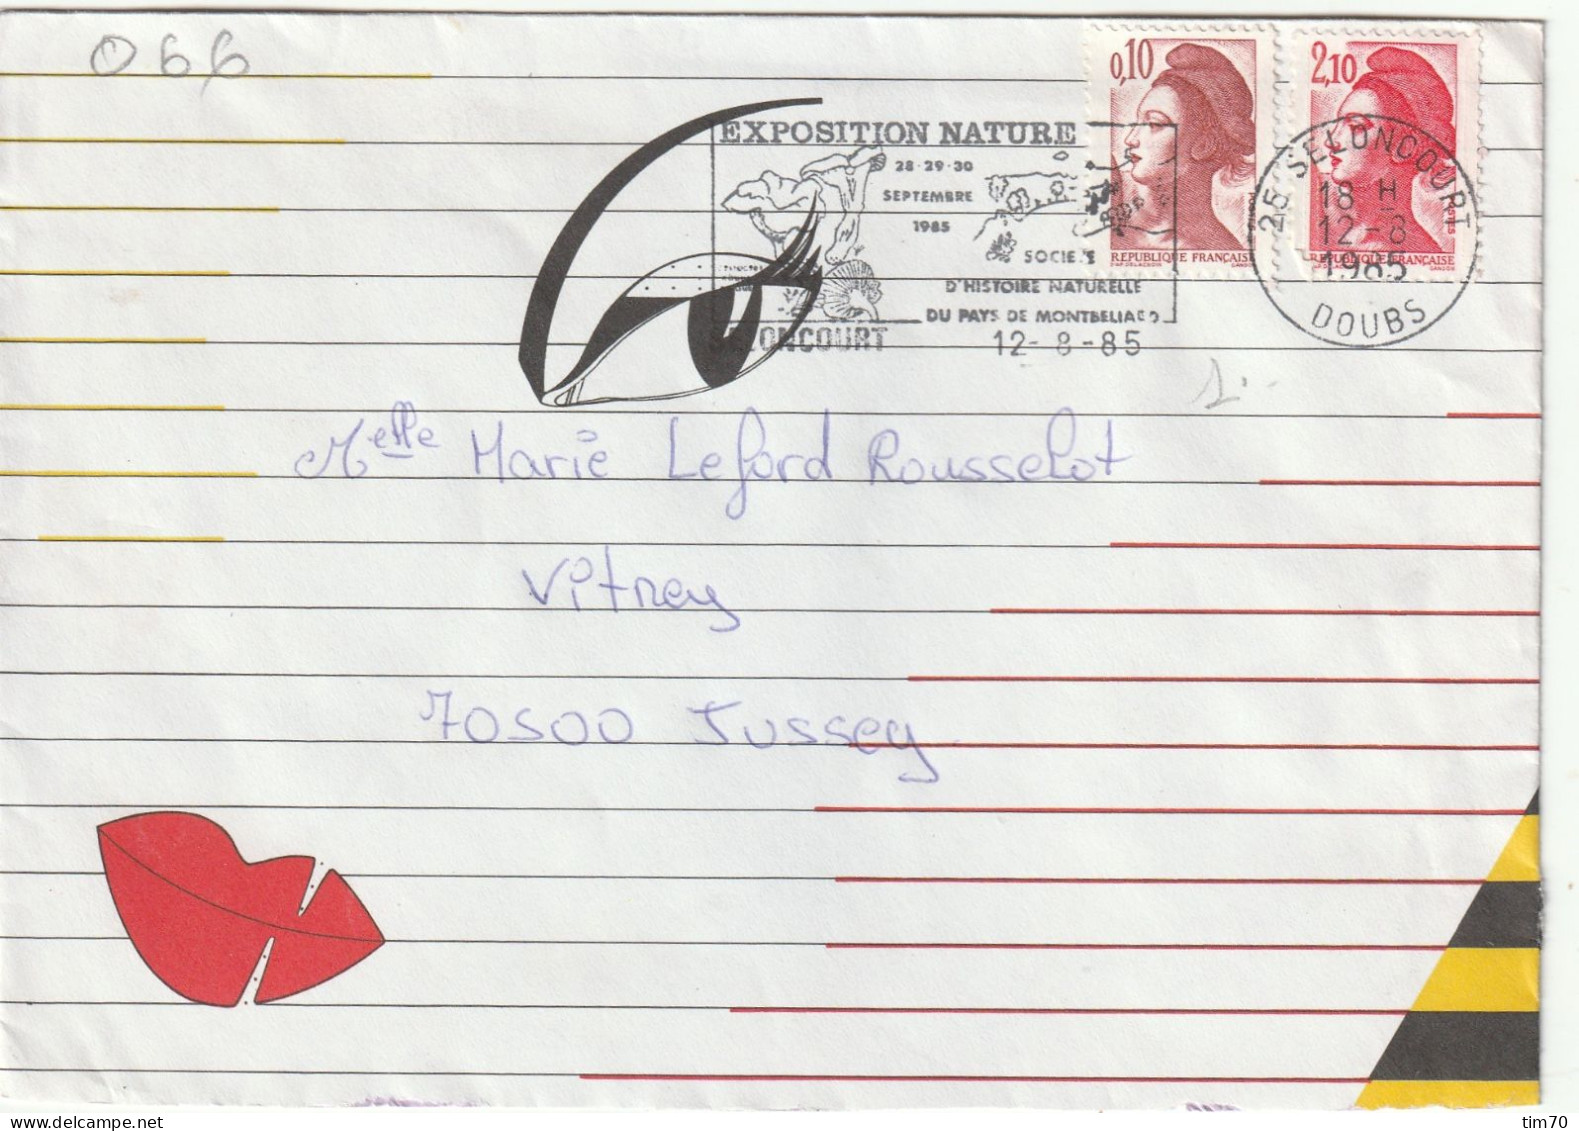 066
0,10
2,10
RÉPUBLIQUE FRANÇAISE
RÉPUBLIQUE FRANÇAISE
EXPOSITION NATURE
28-29-30
SEPTEMBRE
1985
SOCIETE
D'HISTOIRE NATURELLE
DU PAYS DE MONTBELIARD
12-8-85
25 SELONCOURT
18 H
12-8
1985
DOUBS
Melle Marie Leford Rousselot
Vitrey
70500 Jussey
tim70